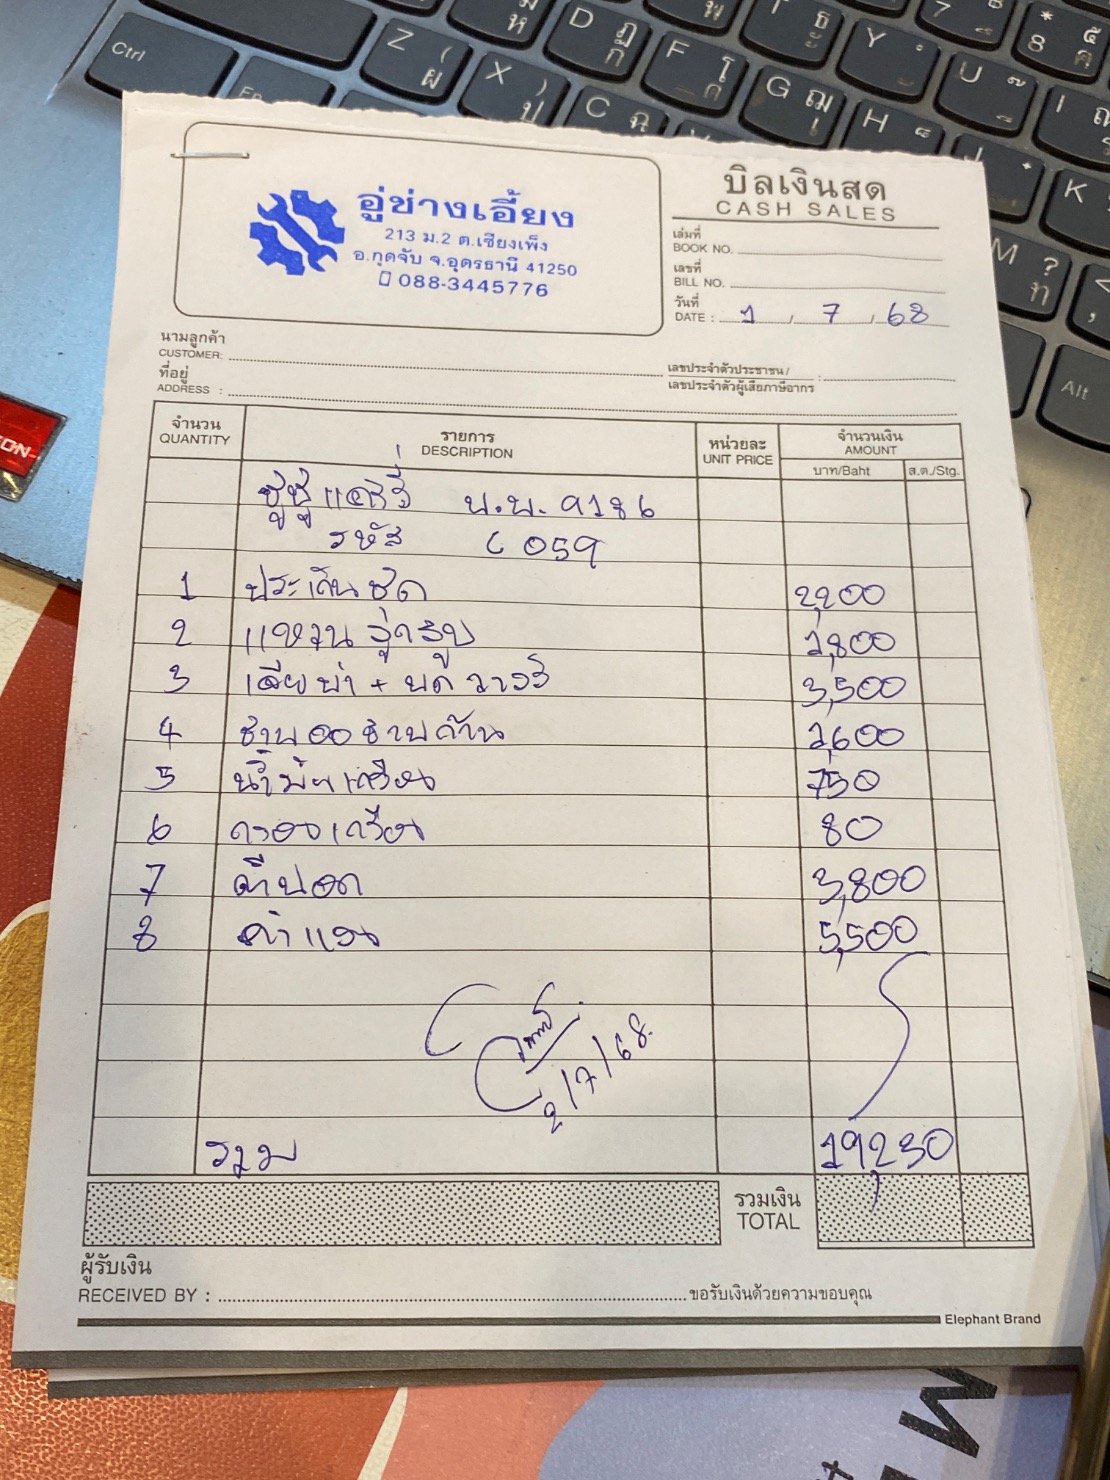 อู่ช่างเอี้ยง
213 ม.2 ต.เชียงเพ็ง
อ.กุดจับ จ.อุดรธานี 41250
088-3445776
บิลเงินสด
CASH SALES
เล่มที่
BOOK NO.
เลขที่
BILL NO.
วันที่
DATE : 1 / 7 / 68
นามลูกค้า
CUSTOMER:
ที่อยู่
ADDRESS :
เลขประจำตัวประชาชน/
เลขประจำตัวผู้เสียภาษีอากร :
จำนวน
QUANTITY
รายการ
DESCRIPTION
หน่วยละ
UNIT PRICE
จำนวนเงิน
AMOUNT
บาท/Baht ส.ต./Stg.
ซูซูแครี่ บ.บ. 9186
รหัส C 059
1 ประเก็นชุด 2,200
2 แหวนลูกสูบ 1,800
3 เจียฝา + บดวาวล์ 3,500
4 ชาบอกชาบก้าน 1,600
5 น้ำมันเครื่อง 750
6 กรองเครื่อง 80
7 ตีปอก 3,800
8 ค่าแรง 5,500
2/7/68.
รวม 19,230
รวมเงิน
TOTAL
ผู้รับเงิน
RECEIVED BY : ขอรับเงินด้วยความขอบคุณ
Elephant Brand
Ctrl
Z
X
C
D
F
G
H
Y
U
I
K
M
Alt
7
8